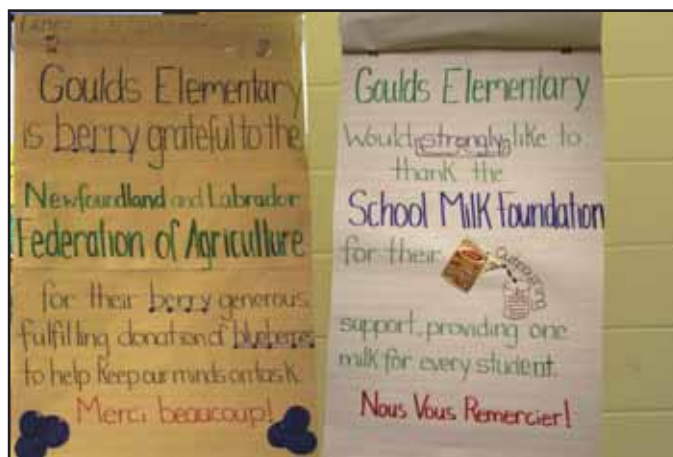 Goulds Elementary
is berry grateful to the
Newfoundland and Labrador
Federation of Agriculture
for their berry generous,
fulfilling donation of blueberries
to help keep our minds on task.
Merci beaucoup!
Goulds Elementary
Would strongly like to
thank the
School Milk Foundation
for their
outpouring
support, providing one
milk for every student.
Nous Vous Remercier!